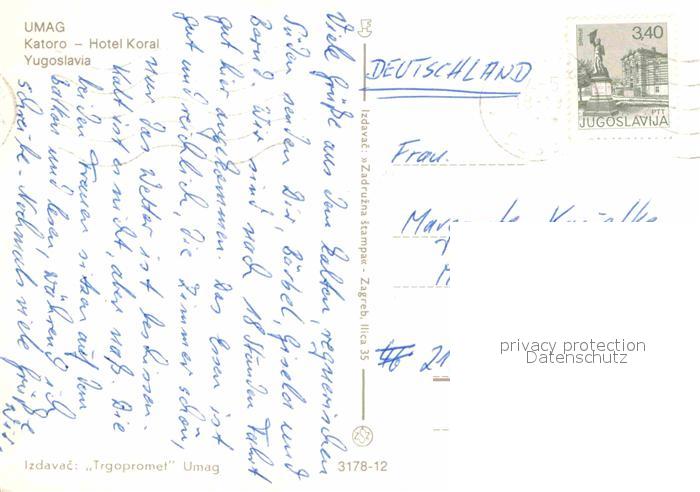 UMAG
Katoro – Hotel Koral
Yugoslavia
Viele Grüße aus dem kalten, regnerischen
Süden senden Dir, Bärbel, Gisela und
Bernd. Wir sind nach 18 Stunden Fahrt
gut hier angekommen. Das Essen ist
gut und reichlich, die Zimmer schön,
nur das Wetter ist besch.
Kalt ist es nicht, aber naß. Die
beiden Frauen sitzen auf dem
Balkon und lesen, während ich
schreibe. Nochmals viele Grüße
Izdavač: „Trgopromet" Umag
Izdavač: »Zadružna štampa« - Zagreb, Ilica 35
3178-12
DEUTSCHLAND
3,40
JUGOSLAVIJA
PTT
Frau
21
privacy protection
Datenschutz